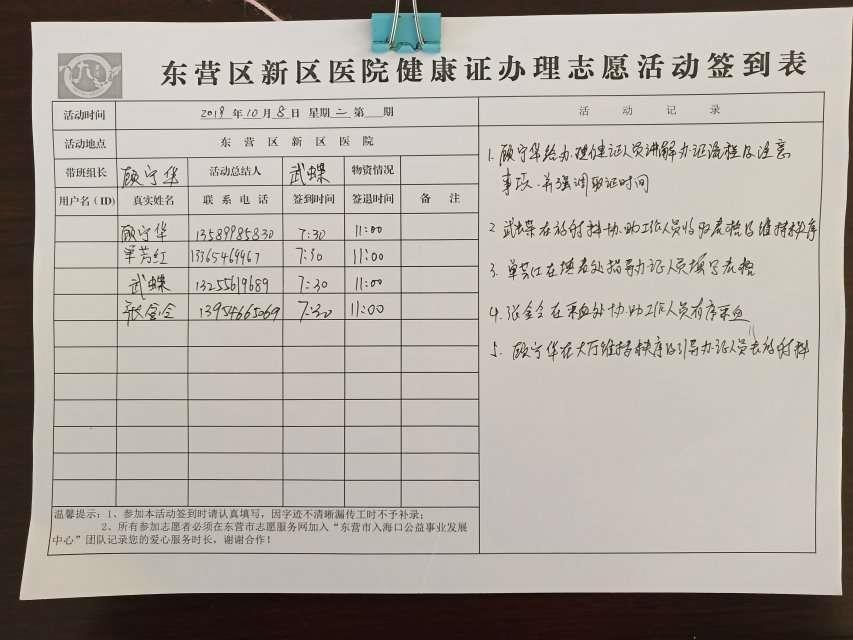 东营区新区医院健康证办理志愿活动签到表
活动时间 2019年10月8日 星期二 第 期
活动地点 东营区新区医院
带班组长 顾宁华 活动总结人 武蝶 物资情况
用户名(ID) 真实姓名 联系电话 签到时间 签退时间 备注
顾宁华 13589985830 7:30 11:00
单芳红 13765469967 7:30 11:00
武蝶 13255619689 7:30 11:00
张金令 13954665069 7:30 11:00
温馨提示:1、参加本活动签到时请认真填写,因字迹不清晰漏传工时不予补录;
2、所有参加志愿者必须在东营市志愿服务网加入“东营市入海口公益事业发展
中心”团队记录您的爱心服务时长,谢谢合作!
活动记录
1. 顾宁华给办理健证人员讲解办证流程及注意
事项、并强调取证时间
2 武蝶在放射科协助工作人员收取表格及维持秩序
3. 单芳红在填表处指导办证人员填写表格
4. 张金令在采血处协助工作人员有序采血
5. 顾宁华在大厅维持秩序及引导办证人员去放射科